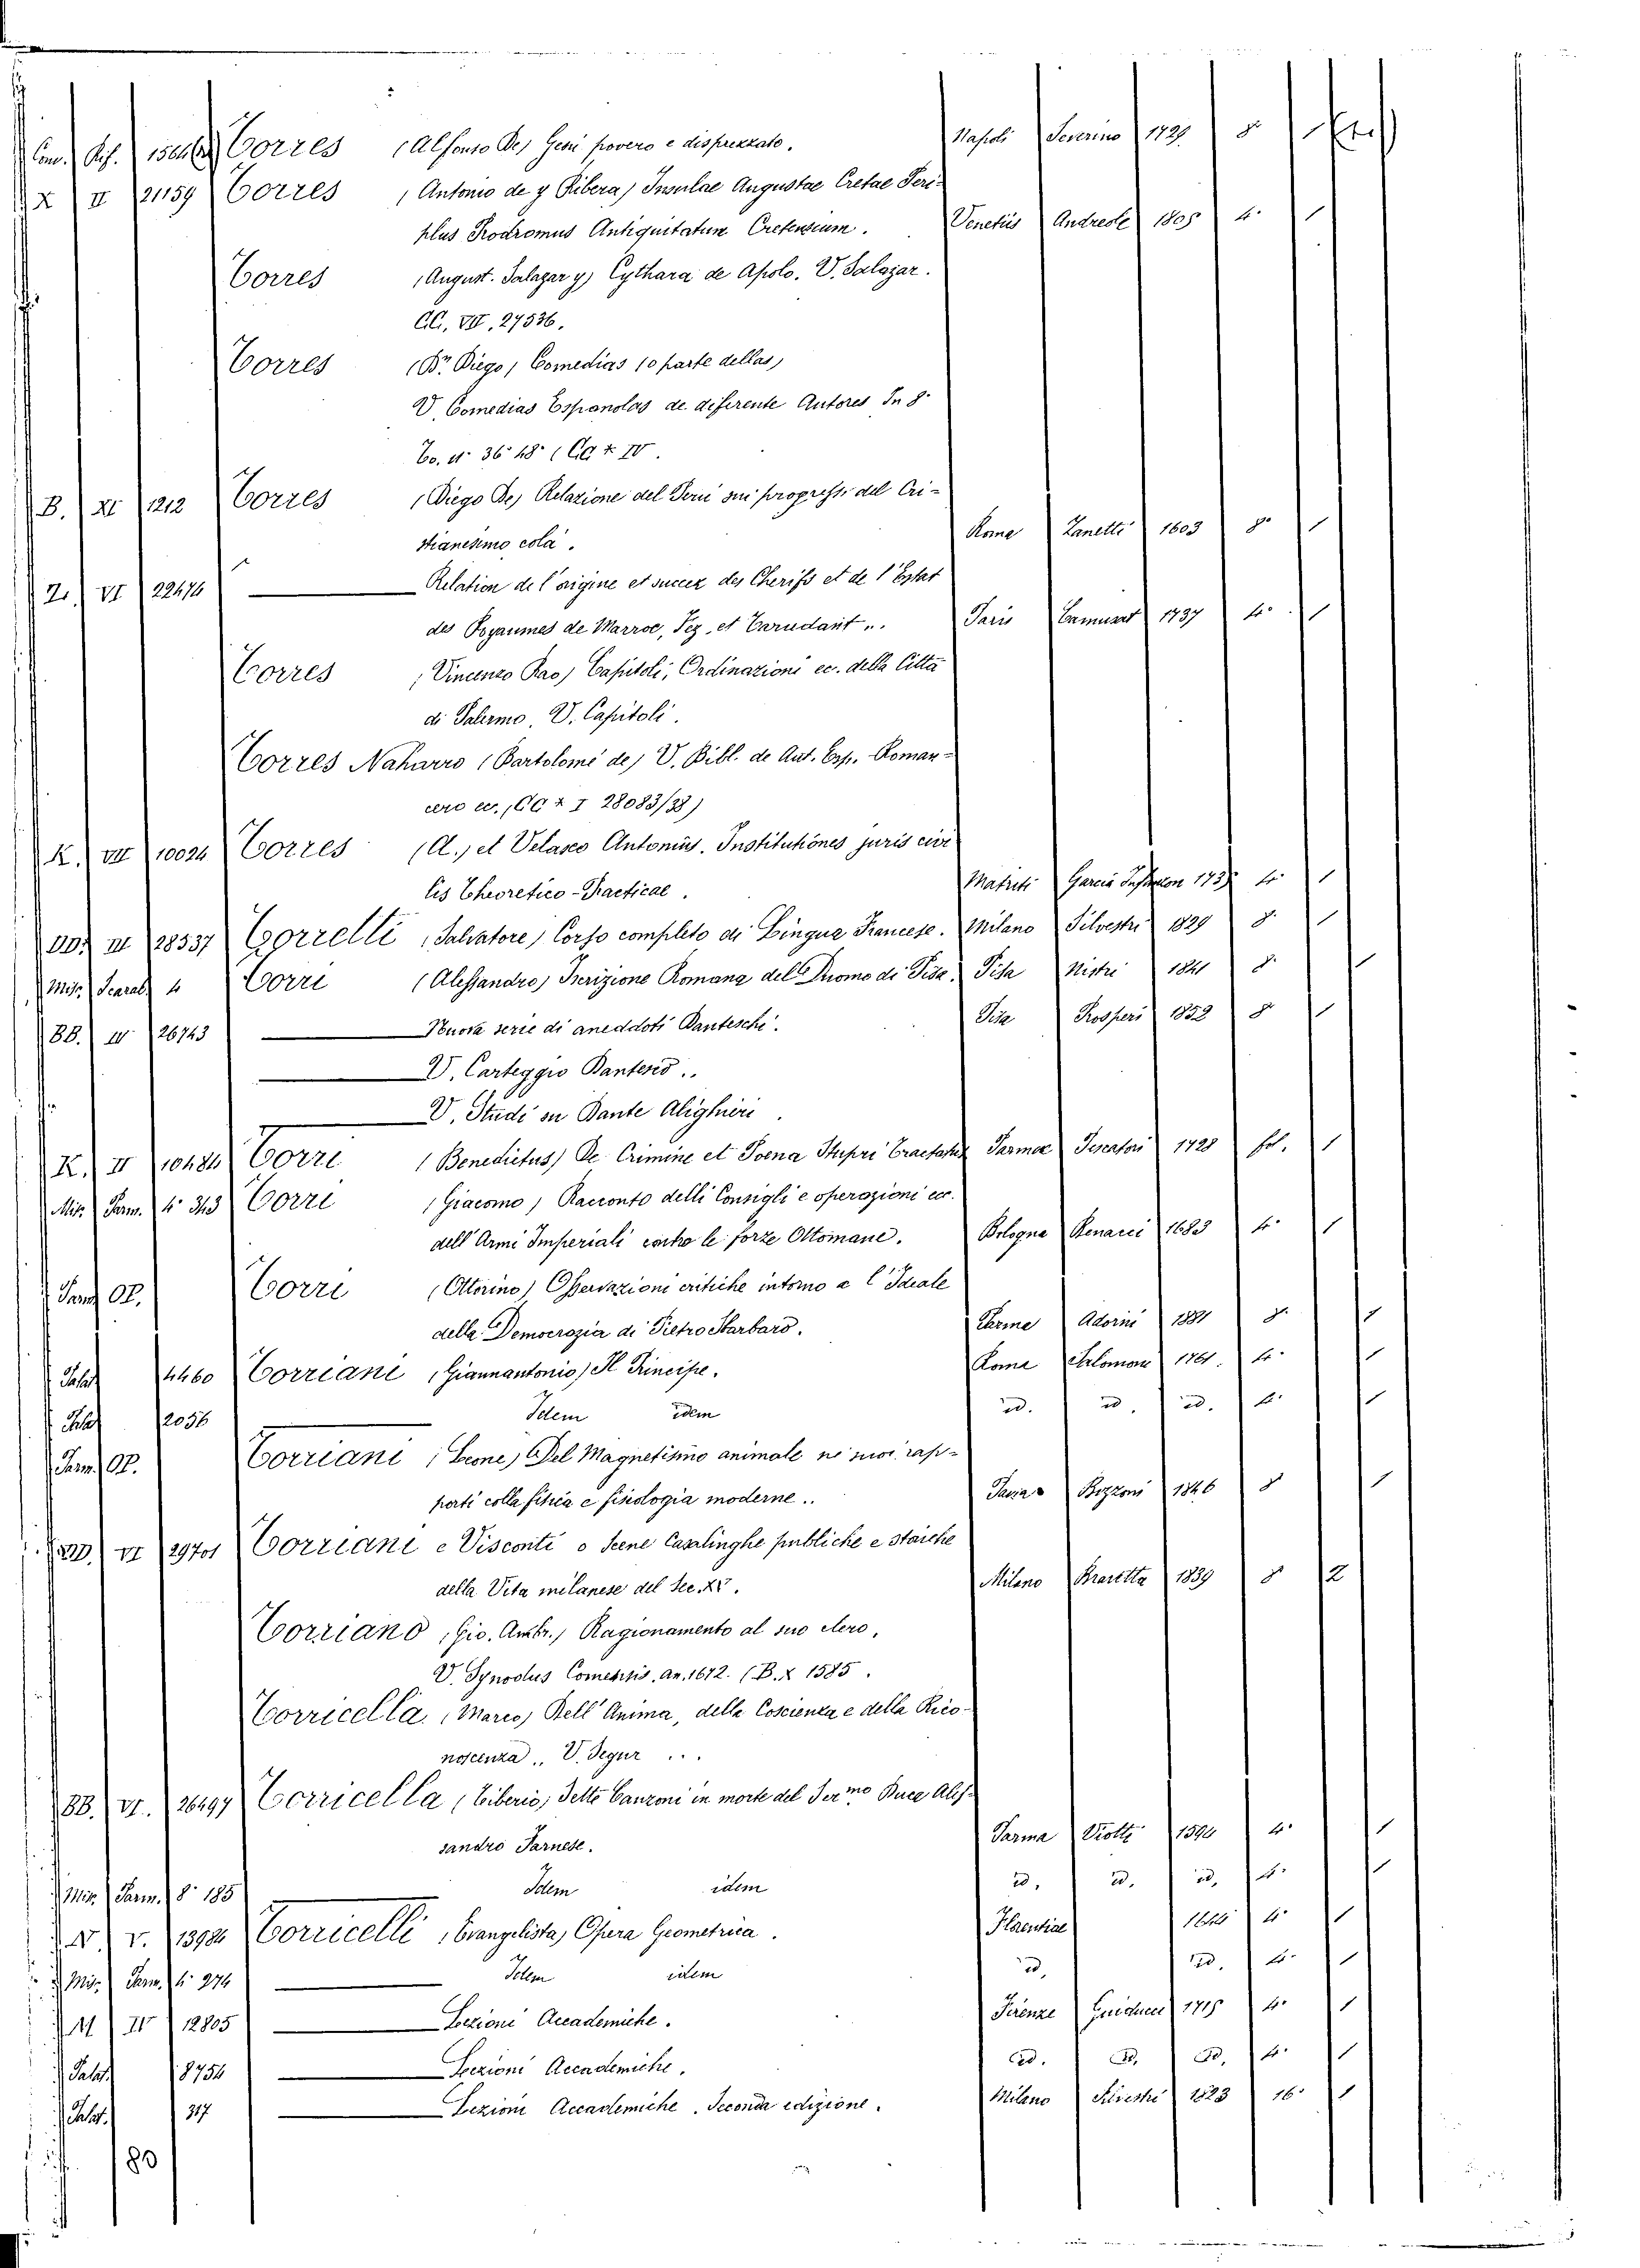 Torres (Alfonso De) Gesù povero e disprezzato. Napoli Severino 1729 8°
X II 21159 Torres (Antonio de y Ribera) Insulae Augustae Cretae Peri-
plus Prodromus Antiquitatum Cretensium. Venetiis 1805 4° 1
Torres (August. Salazar y) Cythara de Apolo. V. Salazar.
CC. VII. 27536.
Torres (Dr. Diego) Comedias 10 parte dellas,
V. Comedias Espanolas de diferente Autores In 8°
To. 11° 36° 48° (CC + IV.
B. XI 1212 Torres (Diego De) Relazione del Perù sui progressi del Cri-
stianesimo colà. Roma Zanetti 1603 8° 1
Z. VI 22474 Relation de l'origine et succez des Cherifs et de l'Estat
des Royaumes de Marroc, Fez, et Tarudant .. Paris Camusat 1737 4° 1
Torres (Vincenzo Rao) Capitoli, Ordinazioni ec. della Città
di Palermo. V. Capitoli.
Torres Naharro (Bartolomé de) V. Bibl. de Aut. Esp. Roman-
cero ec. (CC + I 28083/38)
K. VII 10024 Torres (A.) et Velasco Antonius. Institutiones juris civi
lis Theoretico-Practicae. Matriti Garcia 4° 1
DD. III 28537 Torretti (Salvatore) Corso completo di Lingua Francese. Milano Silvestri 1829 8° 1
Misc. Scarab. 4 Torri (Alessandro) Iscrizione Romana del Duomo di Pisa. Pisa Nistri 1841 8° 1
BB. IV 26743 Nuova serie di aneddoti Danteschi. Pisa Prosperi 1852 8° 1
V. Carteggio Dantesco ..
V. Studi su Dante Alighieri.
K. II 10484 Torri (Benedictus) De Crimine et Poena Stupri Tractatus Parmae 1728 fol. 1
Mis. Parm. 4° 343 Torri (Giacomo) Racconto delli Consigli e operazioni ecc.
dell'Armi Imperiali contro le forze Ottomane. Bologna Benacci 1683 4° 1
Parm. OP. Torri (Ottorino) Osservazioni critiche intorno a l'Ideale
della Democrazia di Pietro Sbarbaro. Parma Adorni 1881 8° 1
Palat. 4460 Torriani (Giannantonio) Il Principe. Roma Salomoni 1761. 4° 1
Palat. 12056 Idem idem id. id. id. 4° 1
Parm. OP. Torriani (Leone) Del Magnetismo animale ne' suoi rap-
porti colla fisica e fisiologia moderne.. Pavia Bizzoni 1846 8 1
DD. VI 29701 Torriani e Visconti o Scene Casalinghe pubbliche e storiche
della Vita milanese del Sec. XV. Milano Bravetta 1839 8 2
Torriano (Gio. Ambr.) Ragionamento al suo clero,
V. Synodus Comensis. an. 1672. (B. X 1585.
Torricella (Marco) Dell'Anima, della Coscienza e della Rico-
noscenza .. V. Segur ...
BB. VI. 26497 Torricella (Tiberio) Sette Canzoni in morte del Ser.mo Duca Ales-
sandro Farnese. Parma Viotti 1594 4° 1
Mis. Parm. 8° 185 Idem idem id. id. id. 4° 1
N V. 13982 Torricelli (Evangelista) Opera Geometrica. Florentiae 1644 4° 1
Mis. Parm. 4° 274 Idem idem id. id. 4° 1
M IV 12805 Lezioni Accademiche. Firenze Guiducci 1715 4° 1
Palat. 8754 Lezioni Accademiche. id. id. id. 4° 1
Palat. 317 Lezioni Accademiche. Seconda edizione. Milano Silvestri 1823 16° 1
80